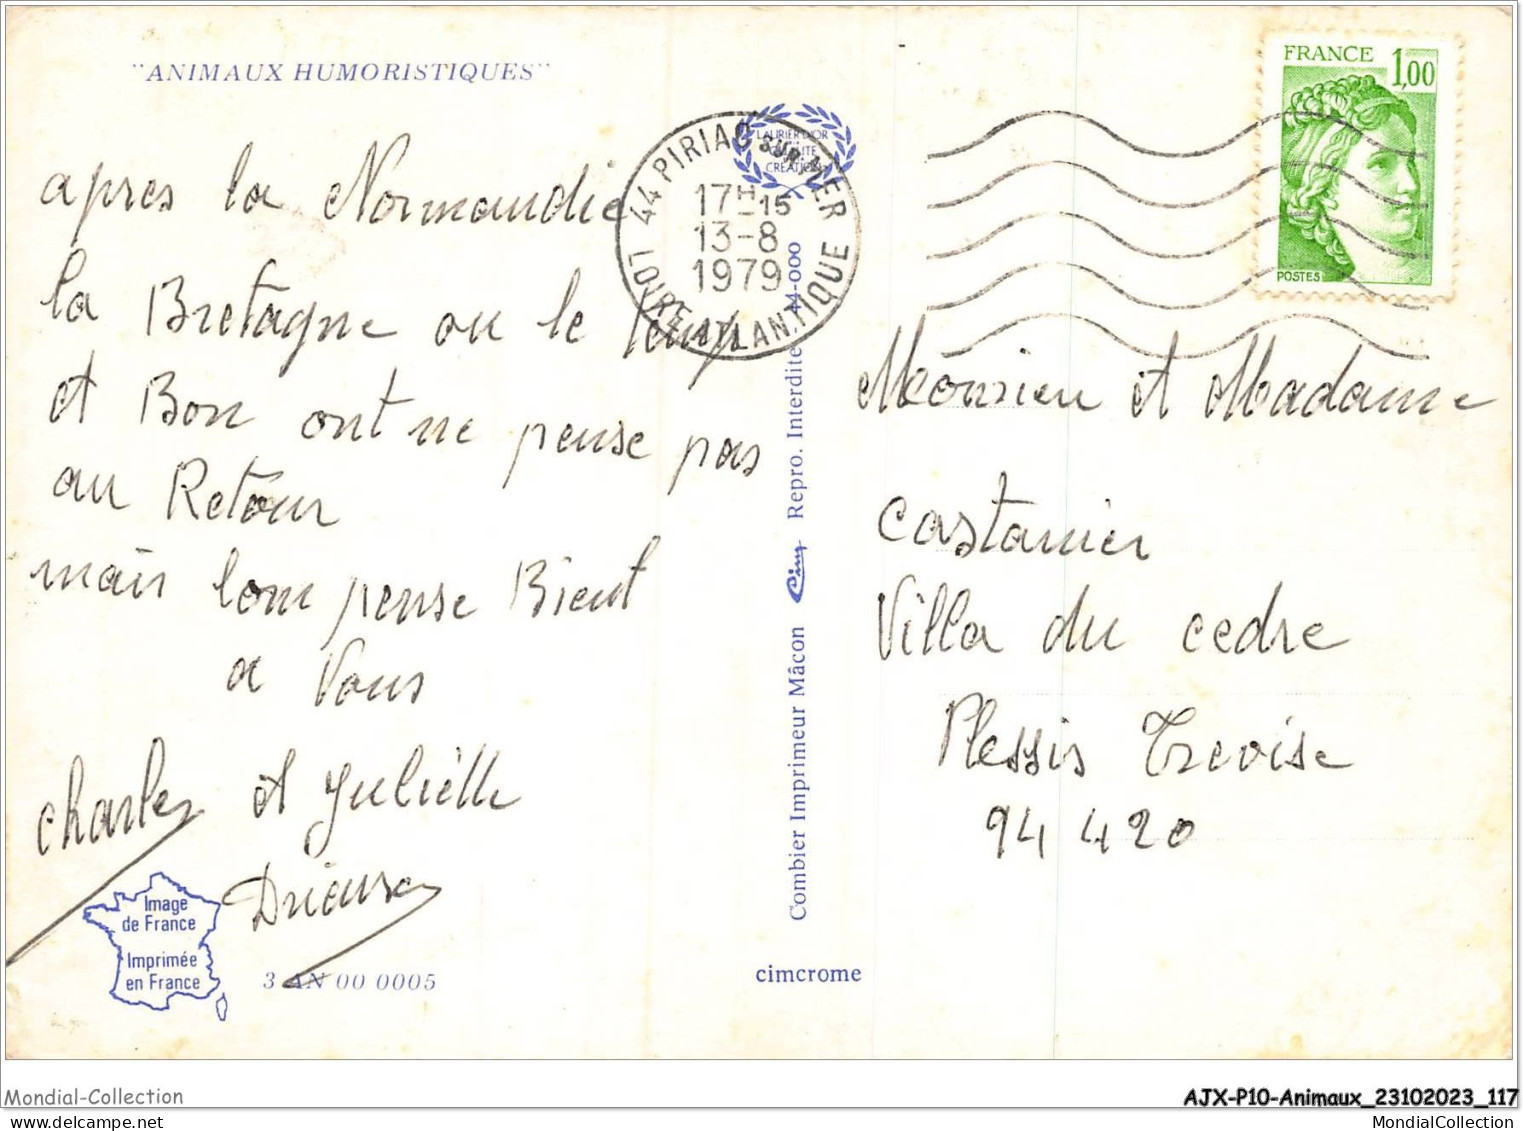 "ANIMAUX HUMORISTIQUES"
après la Normandie
la Bretagne ou le temps
et Bon ont ne pense pas
au Retour
mais lon pense Bient
a Vous
Charles et Juliette
Image
de France
Imprimée
en France
3 AN 00 0005
44 PIRIAC SUR MER
17H-15
13-8
1979
LOIRE ATLANTIQUE
LAURIER D'OR
QUALITE
CREATION
Combier Imprimeur Mâcon Cim Repro. Interdite 44-000
cimcrome
FRANCE 1,00
POSTES
Monsieu et Madame
Castanier
Villa du cedre
Plessis Trevise
94 420
Mondial-Collection
AJX-P10-Animaux_23102023_117
MondialCollection